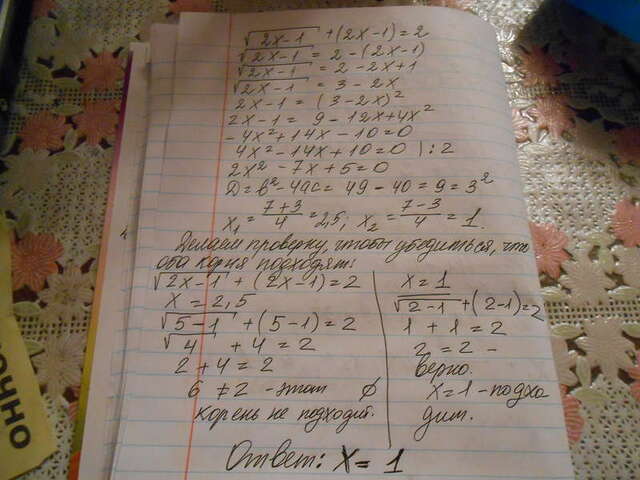 √2x-1 + (2x-1) = 2
√2x-1 = 2 - (2x-1)
√2x-1 = 2 - 2x+1
√2x-1 = 3 - 2x
2x-1 = (3-2x)²
2x-1 = 9 - 12x+4x²
-4x²+14x-10=0
4x²-14x+10=0 | : 2
2x² - 7x + 5 = 0
D = b²-4ac = 49 - 40 = 9 = 3²
x₁ = 7+3/4 = 2,5; x₂ = 7-3/4 = 1.
Делаем проверку, чтобы убедиться, что
оба корня подходят:
√2x-1 + (2x-1) = 2
x = 2,5
√5-1 + (5-1) = 2
√4 + 4 = 2
2+4=2
6 ≠ 2 - этот ∅
корень не подходит.
x=1
√2-1 + (2-1)=2
1 + 1 = 2
2 = 2 -
верно.
x=1 - подхо
дит.
Ответ: x = 1